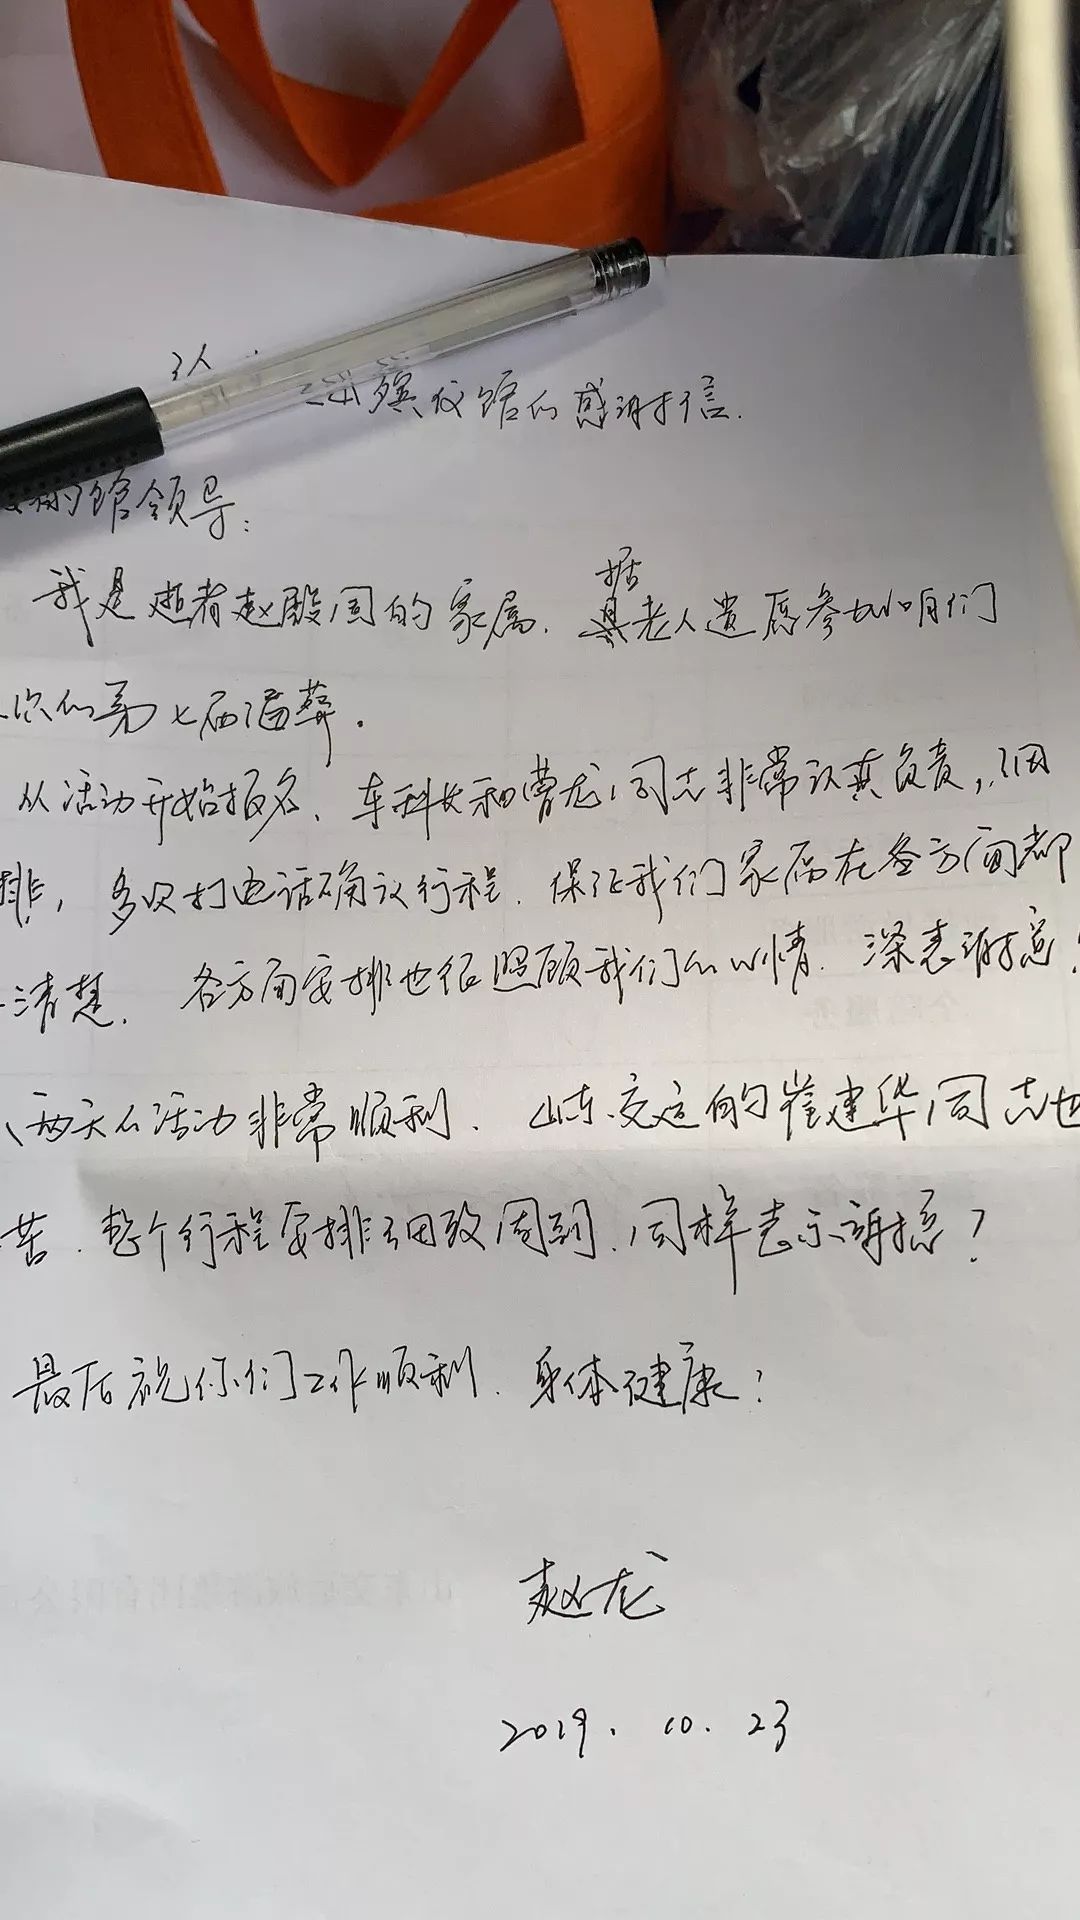 殡仪馆的感谢信.
馆领导:
我是逝者赵殿周的家属. 据老人遗愿参加咱们
的第七届海葬.
从活动开始报名、车科长和曹龙同志非常认真负责,细
排, 多次打电话确认行程. 保证我们家属在各方面都
清楚. 各方面安排也很照顾我们的心情. 深表谢意!
两天的活动非常顺利、山东交运的崔建华同志也
苦. 整个行程安排细致周到. 同样表示谢意!
最后祝你们工作顺利. 身体健康!
赵龙
2019. 10. 23